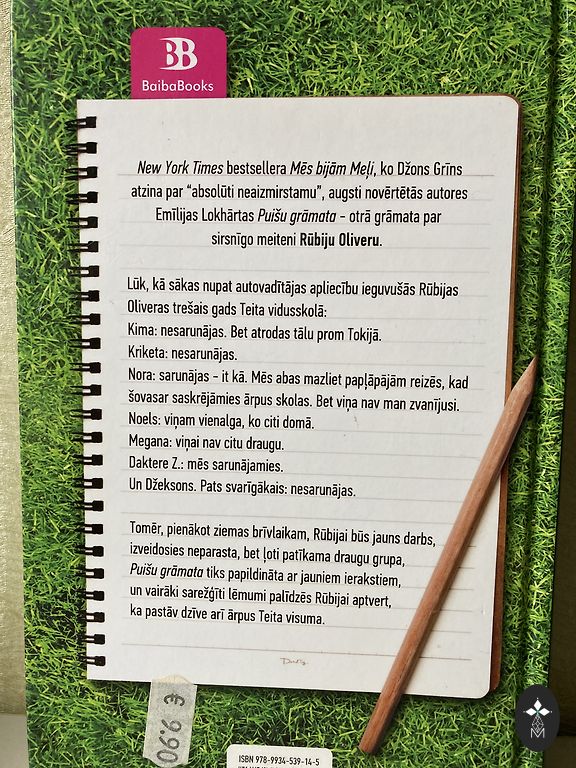 BB
BaibaBooks
New York Times bestsellera Mēs bijām Meļi, ko Džons Grīns
atzina par “absolūti neaizmirstamu”, augsti novērtētās autores
Emīlijas Lokhārtas Puišu grāmata – otrā grāmata par
sirsnīgo meiteni Rūbiju Oliveru.
Lūk, kā sākas nupat autovadītājas apliecību ieguvušās Rūbijas
Oliveras trešais gads Teita vidusskolā:
Kima: nesarunājas. Bet atrodas tālu prom Tokijā.
Kriketa: nesarunājas.
Nora: sarunājas – it kā. Mēs abas mazliet papļāpājām reizēs, kad
šovasar saskrējāmies ārpus skolas. Bet viņa nav man zvanījusi.
Noels: viņam vienalga, ko citi domā.
Megana: viņai nav citu draugu.
Daktere Z.: mēs sarunājamies.
Un Džeksons. Pats svarīgākais: nesarunājas.
Tomēr, pienākot ziemas brīvlaikam, Rūbijai būs jauns darbs,
izveidosies neparasta, bet ļoti patīkama draugu grupa,
Puišu grāmata tiks papildināta ar jauniem ierakstiem,
un vairāki sarežģīti lēmumi palīdzēs Rūbijai aptvert,
ka pastāv dzīve arī ārpus Teita visuma.
€ 9.90
ISBN 978-9934-539-14-5
M